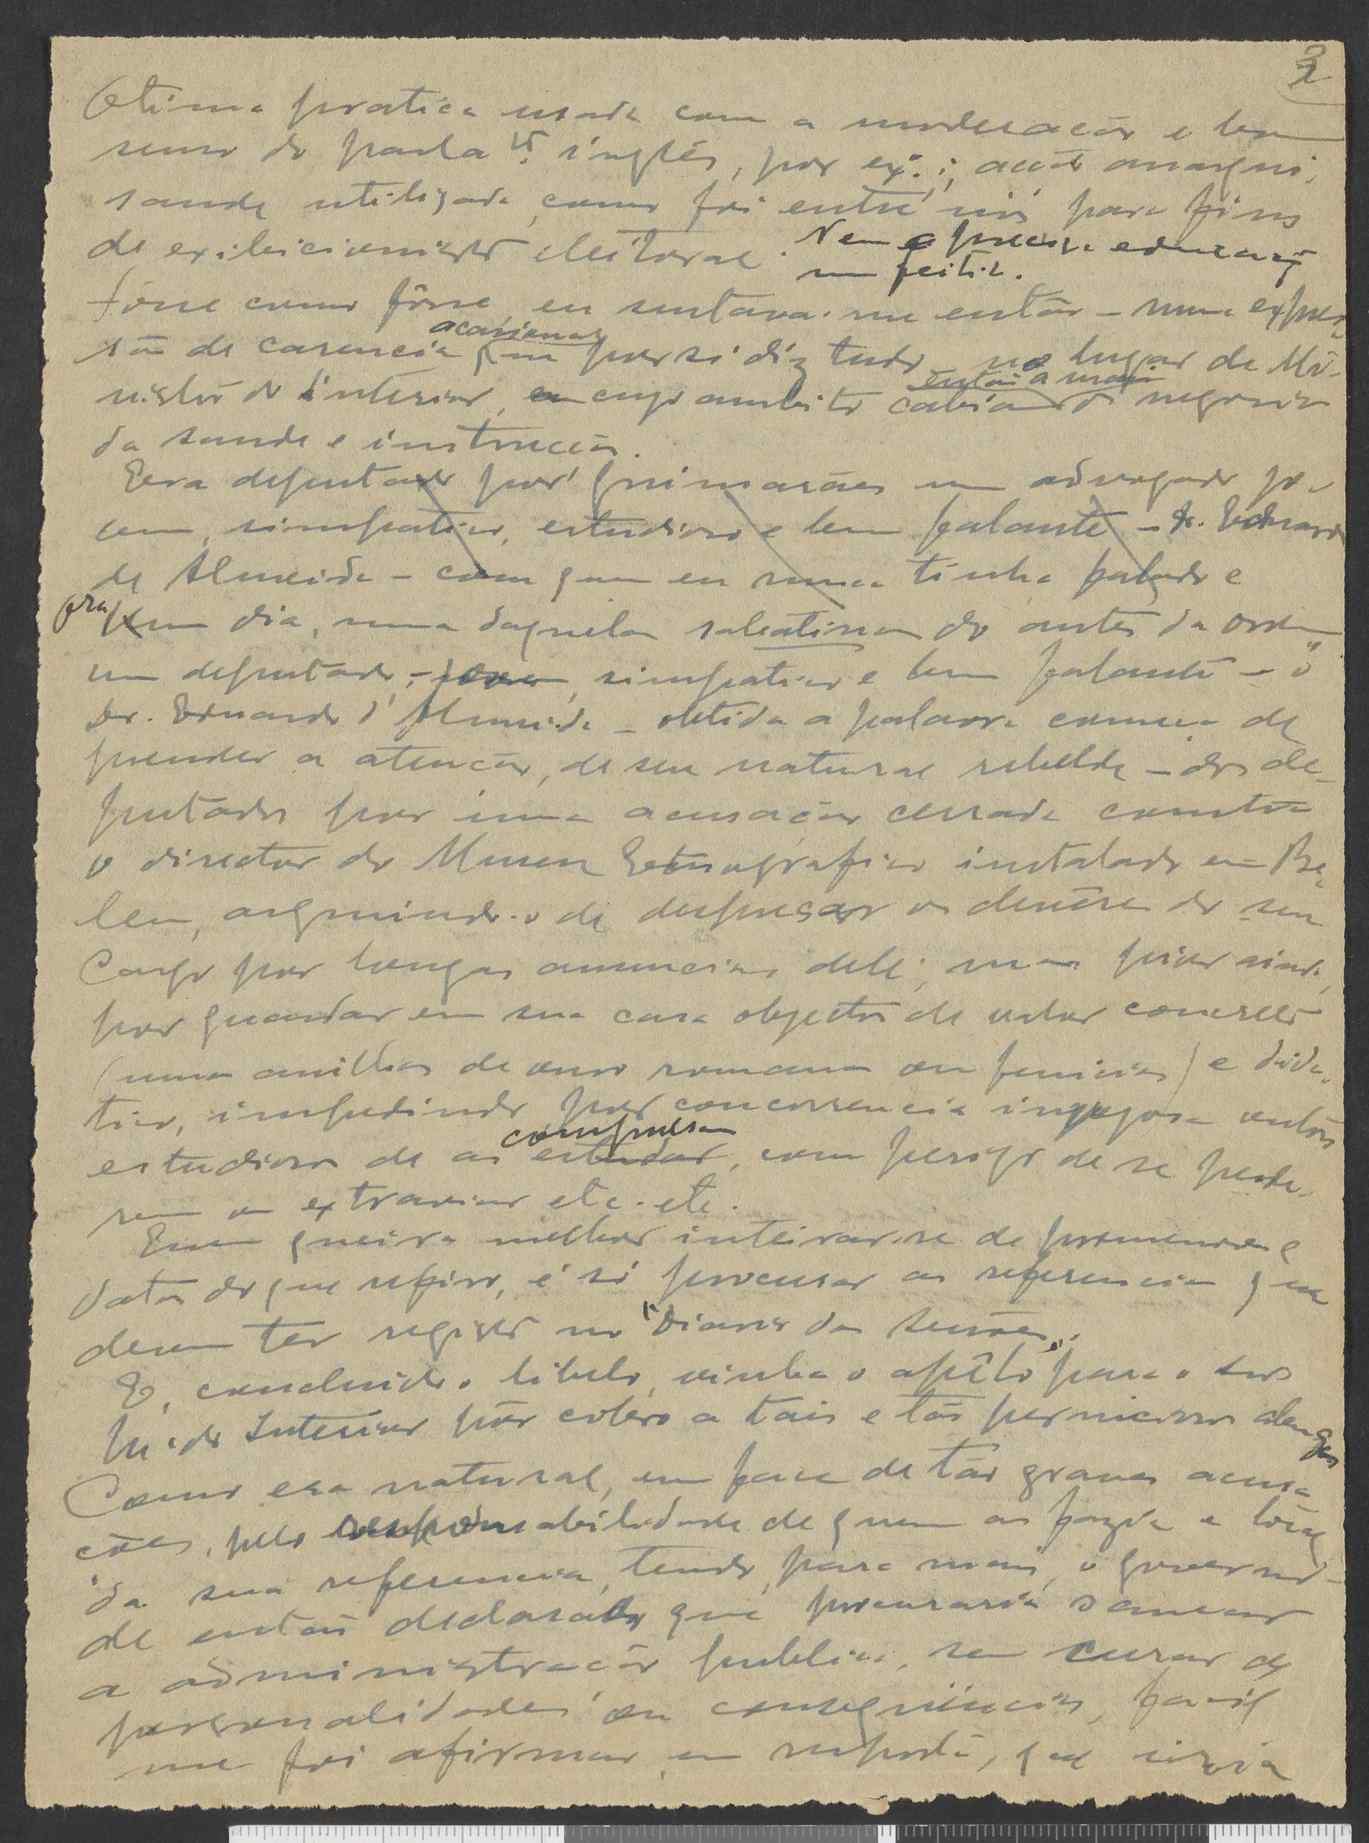 2
Otima pratica usada com a moderação e bom
senso do parla.to inglês, por ex.; acto anarqui-
sando utilizada, como foi entre nós para fins
de exibicionismo eleitoral. Nem é precisa educação
Fosse como fôsse eu sentava-me então - numa expres-
são de carencia ocasional que por si diz tudo no lugar de Mi-
nistro do interior, em cujo ambito cabiam os negocios
então a mais
da saude e instrucção.
Era deputado por Guimarães um advogado jo-
vem, simpatico, estudioso e bem falante - Dr. Eduardo
de Almeida - com quem eu nunca tinha falado e
Ora um dia, numa daquelas sabatinas do antes da ordem
um deputado, - jovem, simpatico e bem falante - o
Dr. Eduardo d'Almeida - obtida a palavra começa de
prender a atenção, de seu natural rebelde - dos de-
putados por uma acusação cerrada contra
o director do Museu Etnografico instalado em Be-
lem, arguindo-o de desprezar os deveres do seu
Cargo por longas ausencias dele; mas pior ainda,
por guardar em sua casa objectos de valor concreto
(umas anilhas de ouro romanas ou fenicias) e dida-
tico, impedindo por concorrencia invejosa outros
estudiosos de os estudar, com perigo de se perde-
compulsar
rem ou extraviar etc. etc.
Quem queira melhor inteirar-se de pormenores e
datas do que refiro, é só procurar as referencias que
devem ter registo no "Diario das Sessões".
E, concluido o libelo, vinha o apêlo para o snr
M. do Interior pôr cobro a tais e tão perniciosos
Como era natural, em face de tão graves acusa-
ções, pela responsabilidade de quem as fazia e local
da sua referencia, tendo, para mais, o governo
de então declarado que procuraria sanear
a administração publica, sem curar de
personalidades ou consequências, facil
me foi afirmar, em resposta, que iria